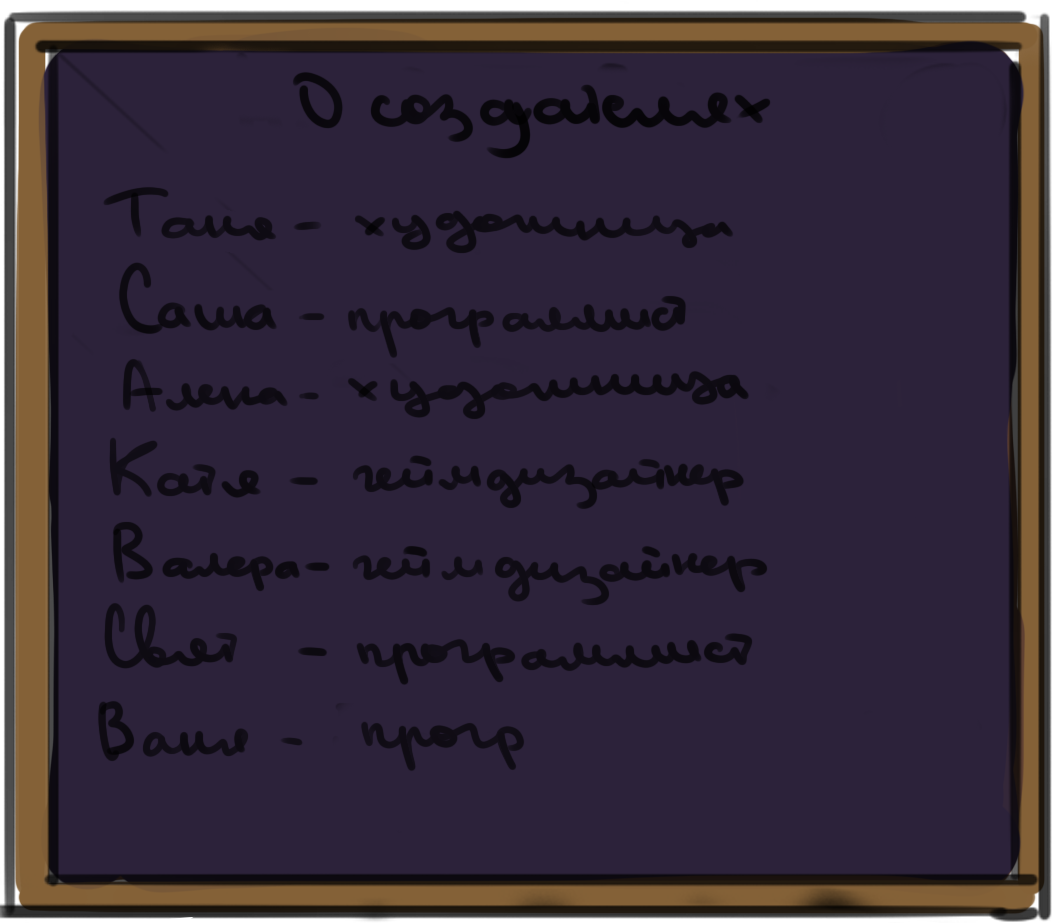 О создателях
Таня - художница
Саша - программист
Алена - художница
Катя - геймдизайнер
Валера - геймдизайнер
Свят - программист
Ваня - прогр